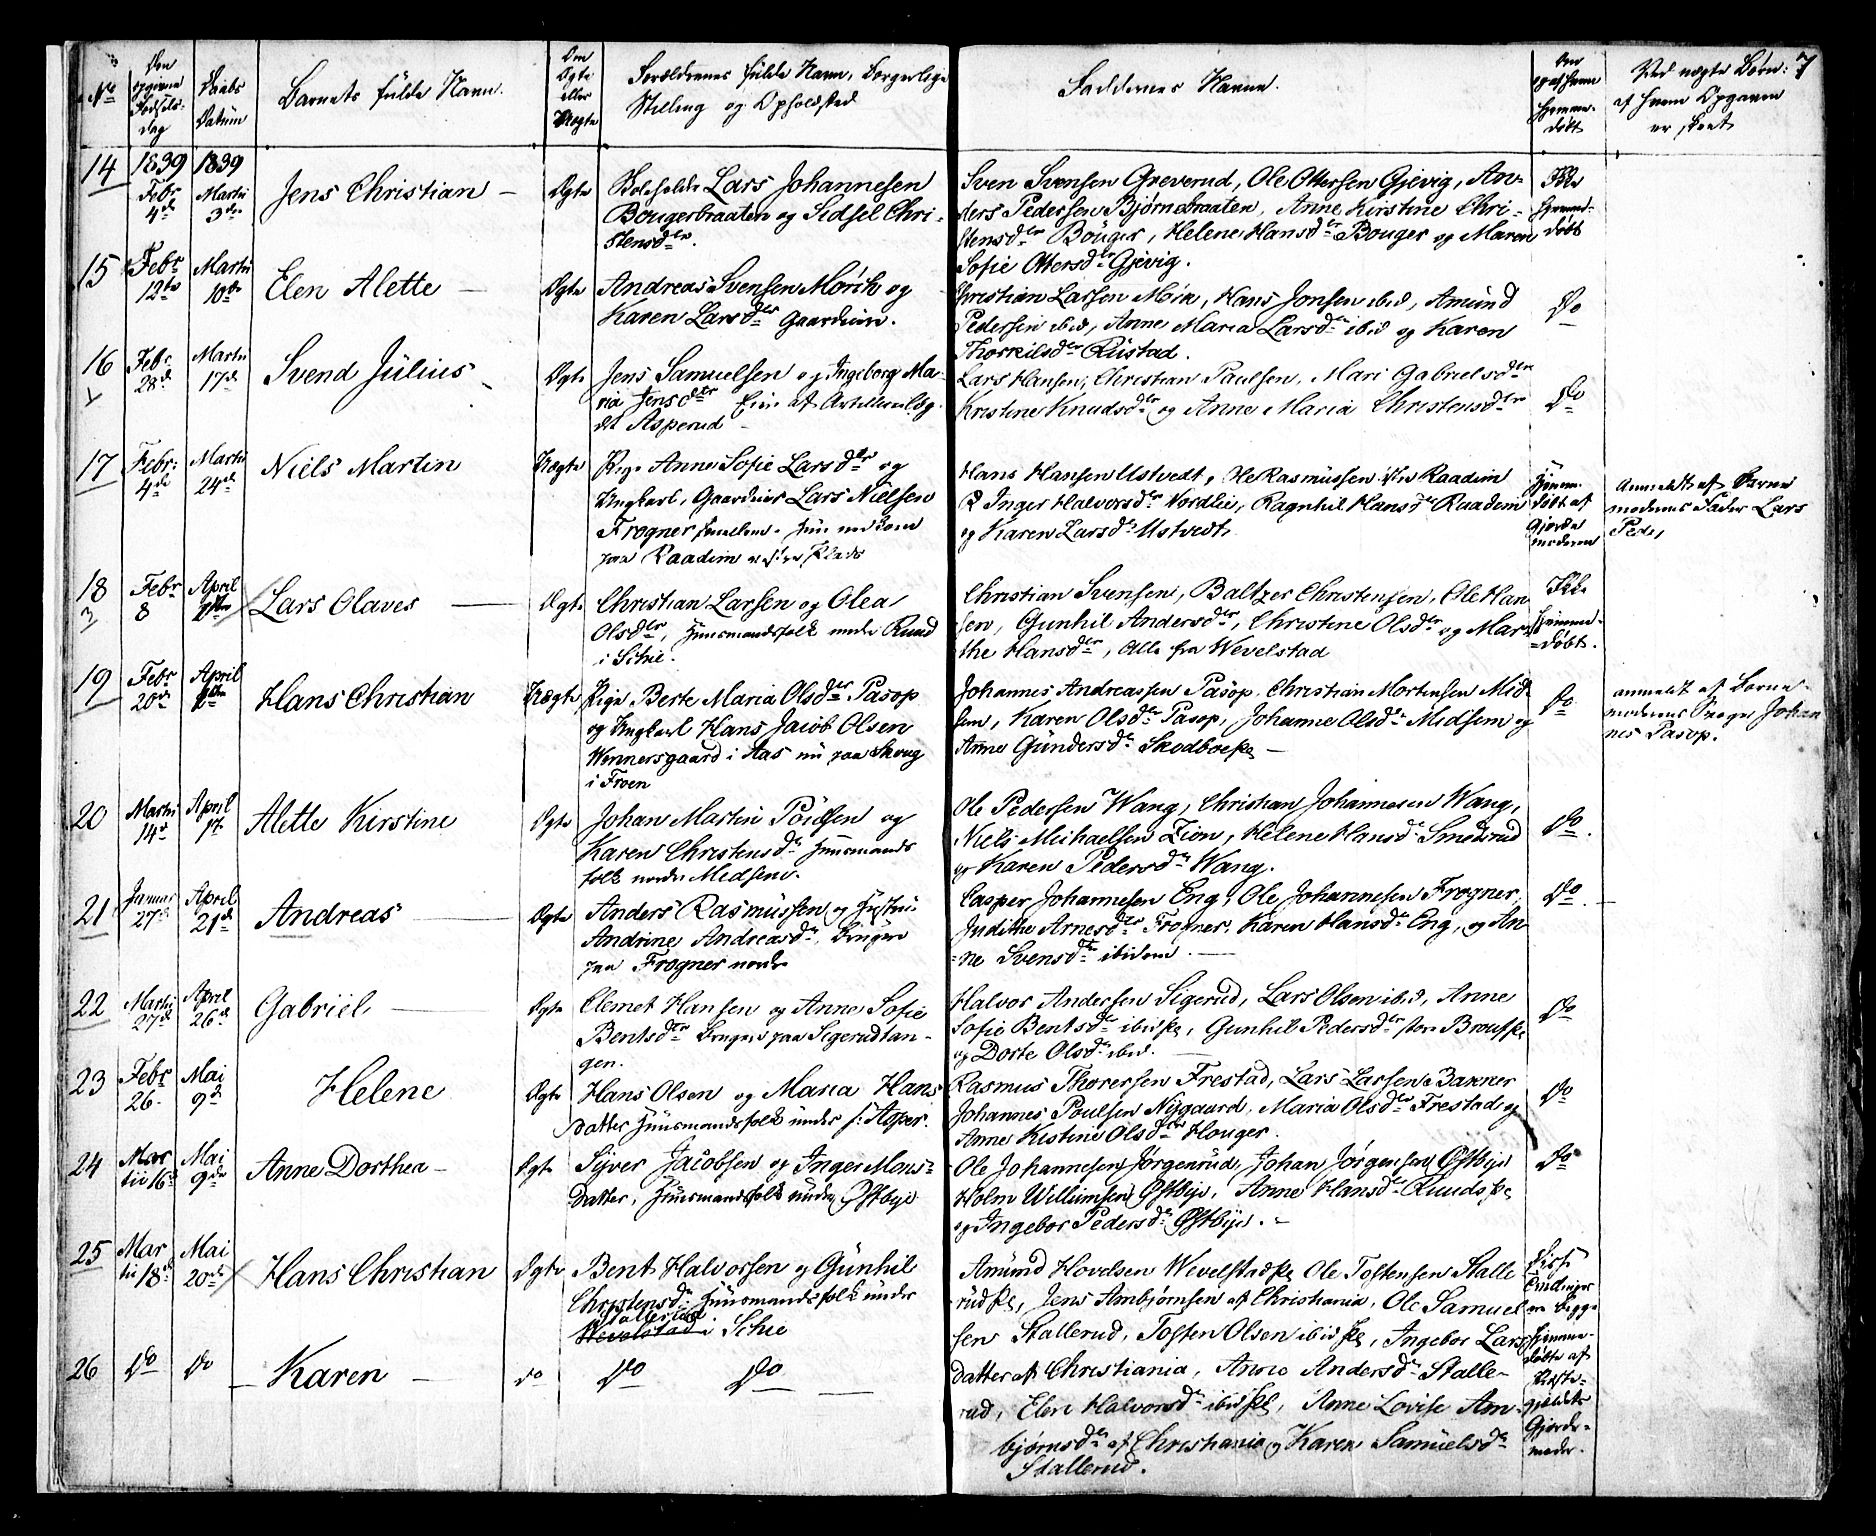 7
No
Den opgivne Fødsels-dag
Daabs Datum
Barnets fulde Navn.
Om Ægte eller Uægte
Forældrenes fulde Navn, borgerlige
Stilling og Opholdsted
Faddernes Navne.
hjemme-døbt
Ved uægte Børn:
af hvem Opgaven
er skeet
14
1839 Febr 4de
1839 Martii 3die
Jens Christian
Ægte
Lars Johannesen
Bougerbraaten og Sidsel Chri-
stensdtr.
Sven Svensen Greverud, Ole Ottersen Gjevig, An-
ders Pedersen Bjørnebraaten, Anne Kirstine Chri-
stensdtr Bouger, Helene Hansdtr Bouger og Maren
Sofie Ottersdtr Gjevig.
Ikke hjemme-døbt
15
Febr 12te
Martii 10de
Elen Alette
Ægte
Andreas Svensen Mørk og
Karen Larsdtr Gaardeier.
Christian Larsen Mørk, Hans Jonsen ibid, Amund
Pedersen ibid, Anne Maria Larsdtr ibid og Karen
Thorkilsdtr Rustad.
Do
16
Febr 28de
Martii 17de
Svend Julius
Ægte
Jens Samuelsen og Ingeborg Ma-
ria Jensdtr
Asperud
Lars Hansen, Christian Paulsen, Mari Gabrielsdtr
Kristine Knudsdtr og Anne Maria Christensdtr
Do
17
Febr: 4de
Martii 24de
Niels Martin
Uægte
Pige Anne Sofie Larsdtr og
Ungkarl, Gaardeier Lars Nielsen
Frogner
paa Raadim
Hans Hansen Ustvedt, Ole Rasmussen Raadim
Inger Halvorsdtr Nordlie, Ragnhil Hansdtr Raadim
og Karen Larsdtr Ustvedt.
hjemme-døbt af Gjorde moderen
Anmeldt af Barne
moderens Fader Lars
Peder
18
3
Febr 8
April 1ste
Lars Olaves
Ægte
Christian Larsen og Olea
Olsdtr, Huusmandsfolk under Ruud
i Schie.
Christian Svensen, Baltzer Christensen, Ole Han
sen, Gunhil Andersdtr, Christine Olsdtr og Mar
the Hansdtr, Alle fra Wevelstad
Ikke hjemme-døbt.
19
Febr 20de
April 1ste
Hans Christian
Uægte
Pige Berte Maria Olsdtr Pasop
og Ungkarl Hans Jacob Olsen
Wennersgaard i Aas nu paa Skoug
i Froen
Johannes Andreassen Pasop, Christian Mortensen Mid
sem, Karen Olsdtr Pasop, Johanne Olsdtr Midsem og
Anne Gundersdtr Skodboeje
Do
anmeldt af Barne-
moderens Johan
nes Pasop.
20
Martii 14de
April 1ste
Alette Kirstine
Ægte
Johan Martin og
Karen Christensdtr Huusmands
folk under Midsem.
Ole Pedersen Wang, Christian Johannesen Wang,
Niels Michaelsen Zion, Helene Hansdtr Smedsrud
og Karen Pedersdtr Wang.
Do
21
Januar 27de
April 21de
Andreas
Ægte
Anders Rasmussen og Hustru
Andrine Andreasdtr, Brugere
paa Frogner nordre
Casper Johannesen Eng, Ole Johannesen Frogner,
Judithe Arnesdtr Frogner, Karen Hansdtr Eng, og An
ne Svensdtr ibidem.
Do
22
Martii 27de
April 26de
Gabriel
Ægte
Clemet Hansen og Anne Sofie
Bentsdtr Brugere paa Sigerudtan-
gen.
Halvor Andersen Sigerud, Lars Olsen ibid, Anne
Sofie Bentsdtr ibid, Gunhil Pedersdtr
og Dorte Olsdtr ibid.
Do
23
Febr 26.
Mai 9de
Helene
Ægte
Hans Olsen og Maria Hans
datter Huusmandsfolk under Asper.
Rasmus Thoresen Frestad, Lars Larsen Bakker
Johannes Poulsen Nygaard, Maria Olsdtr Frestad og
Anne Kistine Olsdtr Houger.
Do
24
Martii 16de
Mai 9de
Anne Dorthea
Ægte
Syver Jacobsen og Inger Mons-
datter, Huusmandsfolk under Østbye
Ole Johannesen Jørgenrud, Johan Jørgensen Østbye
Holm Willumsen Østbye, Anne Hansdtr Ruuds
og Ingebor Pedersdtr Østbye.
Do
25
Martii 18de
Mai 20de
Hans Christian
Ægte
Bent Halvorsen og Gunhil
Christensdtr Huusmandsfolk under
Stallerud
Wevelstad i Schie
Amund Hovelsen Wevelstad Ole Tostensen Stalle
rud, Jens Ambjørnsen af Christiania, Ole Samuel
sen Stallerud, Tosten Olsen ibid, Ingebor Lars
datter af Christiania, Anne Andersdtr Stalle-
rud, Elen Halvorsdtr ibid, Anne Lovise Am-
bjørnsdtr af Christiania og Karen Samuelsdtr
Stallerud.
Disse Tvillinger ere begge hjemme-døbte af Præste-gjeldets Gjorde-moder.
26
Do
Do
Karen
Do
Do Do